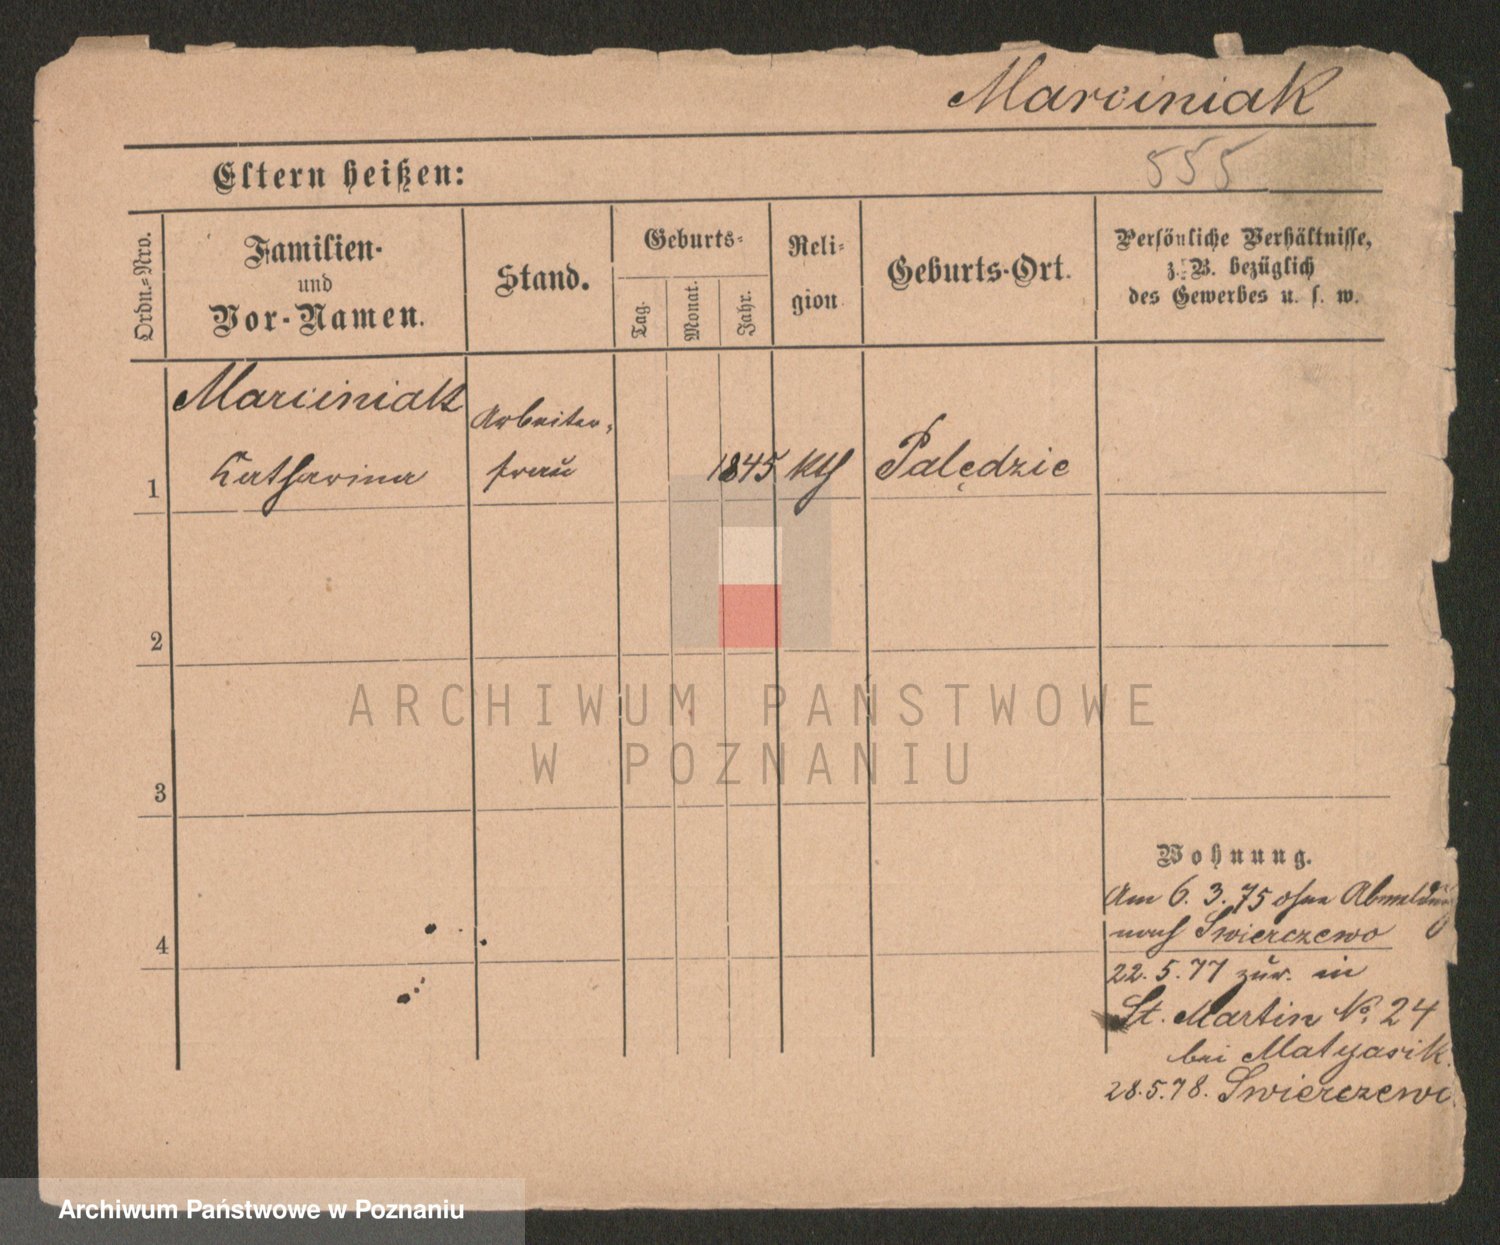 Marciniak
555
Eltern heißen:
Ordn.-Nro.
Familien-
und
Vor-Namen.
Stand.
Geburts-
Tag.
Monat.
Jahr.
Reli-
gion
Geburts-Ort.
Persönliche Verhältnisse,
z. B. bezüglich
des Gewerbes u. s. w.
Marciniak
Arbeiter-
1
Katharina
frau
1845
kth
Palędzie
2
ARCHIWUM PAŃSTWOWE
W POZNANIU
3
Wohnung.
Am 6.3.75 ohne Abmeldung
4
nach Swierczewo
22.5.77 zur. in
St. Martin No. 24
bei Matyasik.
28.5.78. Swierczewo
Archiwum Państwowe w Poznaniu